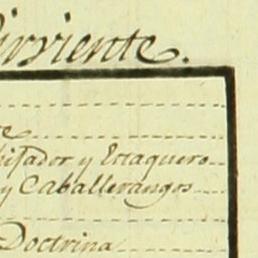 irviente.
te
isador y Estaquero
y Caballerangos
Doctrina